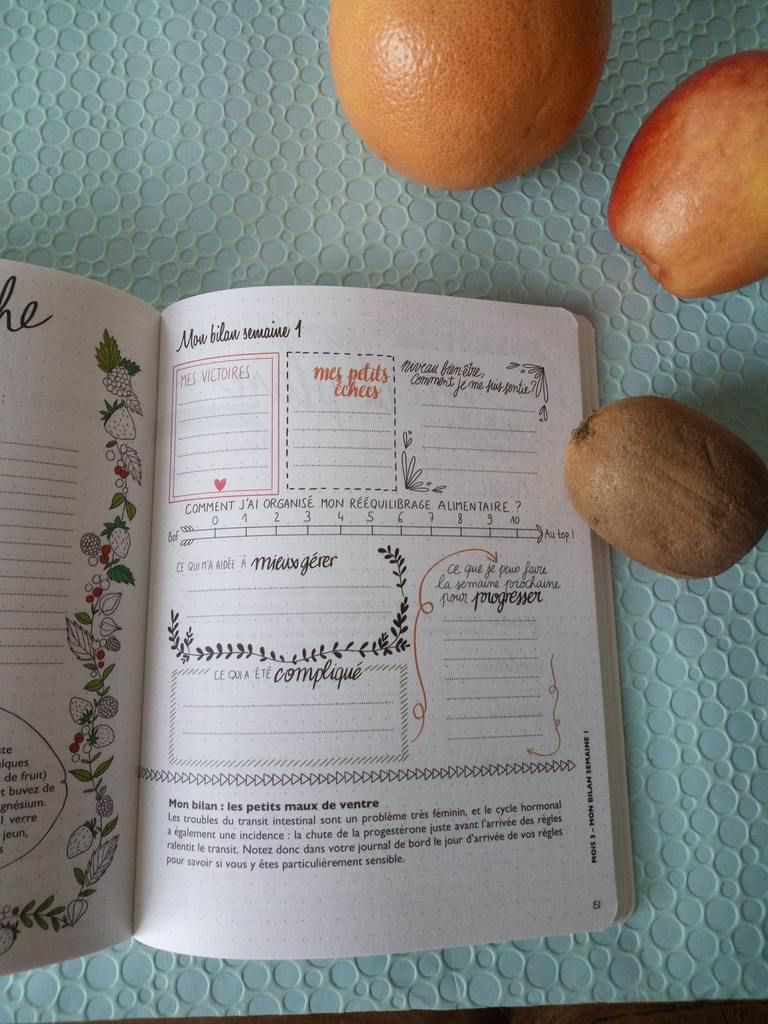 he
ste
elques
de fruit)
t buvez de
gnésium.
l verre
jeun,
s
Mon bilan semaine 1
MES VICTOIRES
mes petits
échecs
niveau bien-être,
comment je me suis sentie ?
COMMENT J'AI ORGANISÉ MON RÉÉQUILIBRAGE ALIMENTAIRE ?
Bof 0 1 2 3 4 5 6 7 8 9 10 Au top !
CE QUI M'A AIDÉE À mieux gérer
ce que je peux faire
la semaine prochaine
pour progresser
CE QUI A ÉTÉ compliqué
Mon bilan : les petits maux de ventre
Les troubles du transit intestinal sont un problème très féminin, et le cycle hormonal
a également une incidence : la chute de la progestérone juste avant l'arrivée des règles
ralentit le transit. Notez donc dans votre journal de bord le jour d'arrivée de vos règles
pour savoir si vous y êtes particulièrement sensible.
MOIS 3 – MON BILAN SEMAINE 1
151